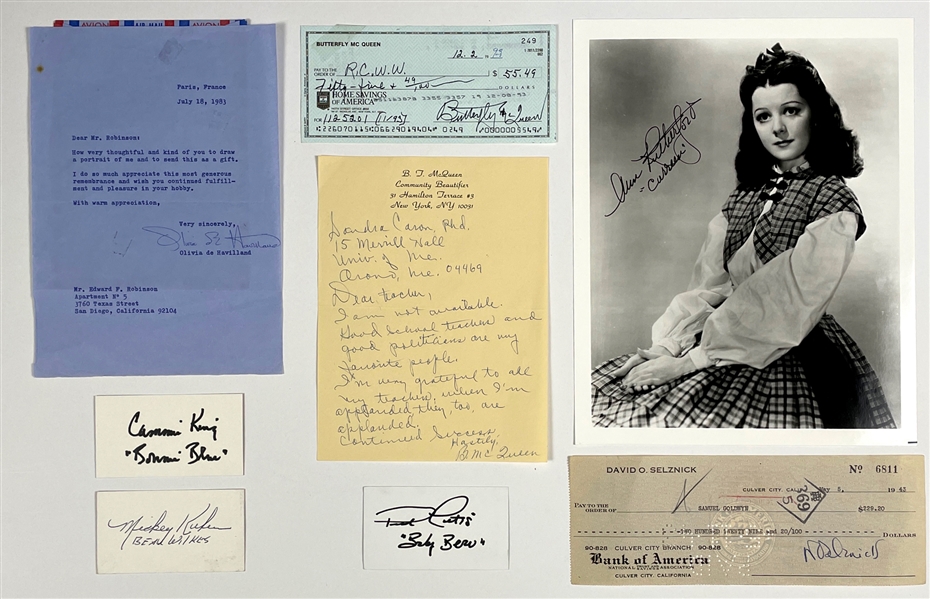 AVION AIR MAIL PAR AVION
Paris, France
July 18, 1983
Dear Mr. Robinson:
How very thoughtful and kind of you to draw
a portrait of me and to send this as a gift.
I do so much appreciate this most generous
remembrance and wish you continued fulfill-
ment and pleasure in your hobby.
With warm appreciation,
Very sincerely,
Olivia de Havilland
Mr. Edward F. Robinson
Apartment Nº 5
3760 Texas Street
San Diego, California 92104
BUTTERFLY MC QUEEN
249
12.2 1993
PAY TO THE
ORDER OF R.C.W.W. $ 55.49
Fifty-five & 49/100 DOLLARS
HOME SAVINGS
OF AMERICA
Butterfly McQueen
FOR
B. T. McQueen
Community Beautifier
31 Hamilton Terrace #3
New York, NY 10031
Sandra Caron, Phd.
15 Merrill Hall
Univ. of Me.
Orono, Me. 04469
Dear teacher,
I am not available.
Good school teachers and
good politicians are my
favorite people.
I'm very grateful to all
my teachers; when I'm
applauded they, too, are
applauded.
Continued Success
Hastily,
B. McQueen
Ann Rutherford
"Carreen"
Cammie King
"Bonnie Blue"
Mickey Kuhn
BEAU WILKES
"Baby Beau"
DAVID O. SELZNICK
Nº 6811
CULVER CITY, CALIF. May 8, 1942
PAY TO THE
ORDER OF SAMUEL GOLDWYN $229.20
TWO HUNDRED TWENTY NINE and 20/100 DOLLARS
90-828 CULVER CITY BRANCH 90-828
Bank of America
NATIONAL TRUST AND SAVINGS ASSOCIATION
CULVER CITY, CALIFORNIA
DOSelznick